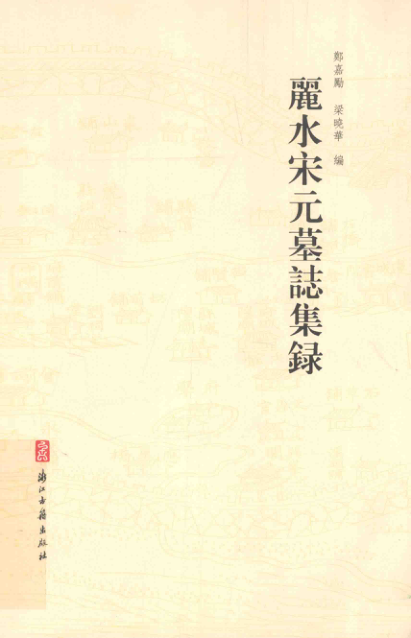 鄭嘉勵 梁曉華 編
麗水宋元墓誌集録
浙江古籍出版社